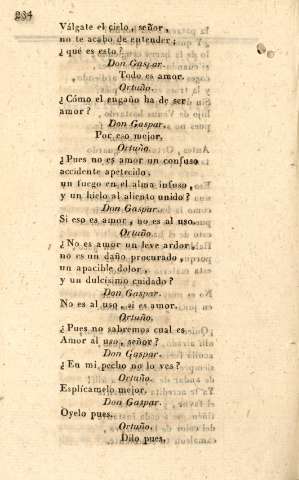 234
Válgate el cielo, señor,
no te acabo de entender;
¿qué es esto?
Don Gaspar.
Todo es amor.
Ortuño.
¿Cómo el engaño ha de ser
amor?
Don Gaspar.
Por eso mejor.
Ortuño.
¿Pues no es amor un confuso
accidente apetecido,
un fuego en el alma infuso,
y un hielo al aliento unido?
Don Gaspar.
Si eso es amor, no es al uso.
Ortuño.
¿No es amor un leve ardor,
no es un daño procurado,
un apacible dolor,
y un dulcísimo cuidado?
Don Gaspar.
No es al uso, si es amor.
Ortuño.
¿Pues no sabremos cual es
Amor al uso, señor?
Don Gaspar.
¿En mi pecho no lo ves?
Ortuño.
Esplícamelo mejor.
Don Gaspar.
Oyelo pues.
Ortuño.
Dilo pues.